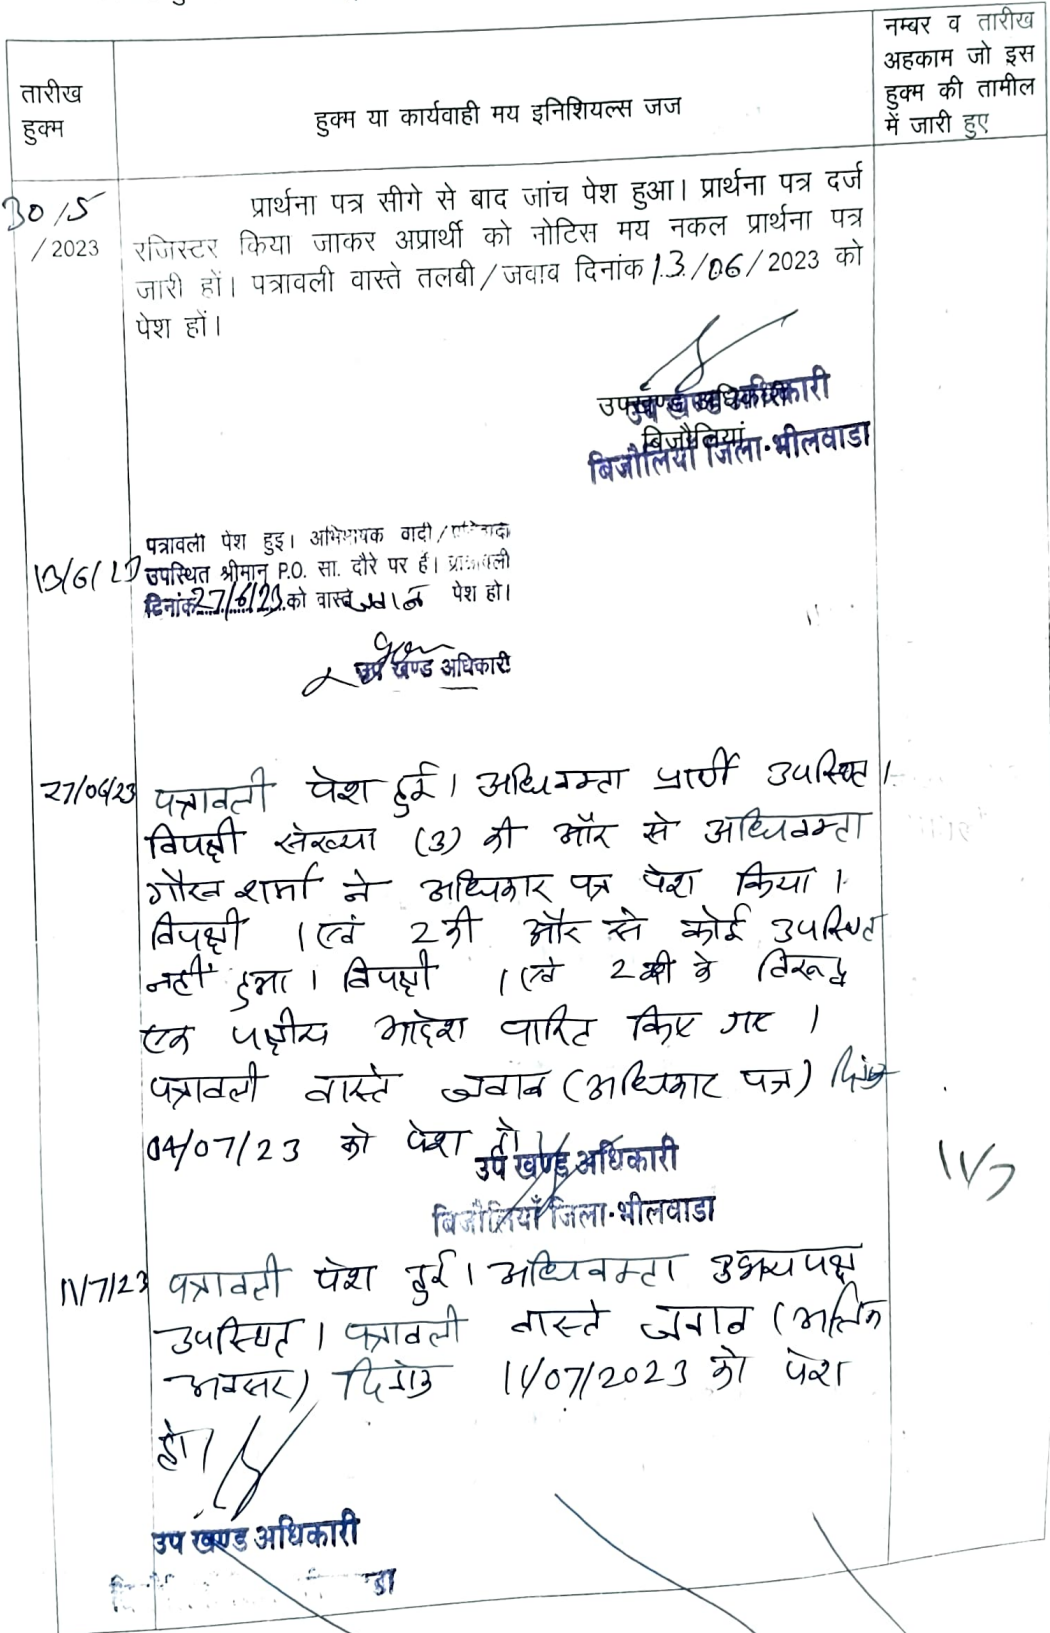 तारीख
हुक्म
हुक्म या कार्यवाही मय इनिशियल्स जज
नम्बर व तारीख
अहकाम जो इस
हुक्म की तामील
में जारी हुए
30/5
/2023
प्रार्थना पत्र सीगे से बाद जांच पेश हुआ। प्रार्थना पत्र दर्ज
रजिस्टर किया जाकर अप्रार्थी को नोटिस मय नकल प्रार्थना पत्र
जारी हों। पत्रावली वास्ते तलबी/जवाब दिनांक 13/06/2023 को
पेश हों।
उपखण्ड अधिकारी
बिजौलियां
उप खण्ड अधिकारी
बिजौलियाँ जिला-भीलवाडा
13/6/23
पत्रावली पेश हुइ। अभिभाषक वादी/
उपस्थित श्रीमान् P.O. सा. दौरे पर हैं। पत्रावली
दिनांक 27/6/23 को वास्ते जवाब पेश हो।
उप खण्ड अधिकारी
27/06/23
पत्रावली पेश हुई। अधिवक्ता प्रार्थी उपस्थित।
विपक्षी संख्या (3) की और से अधिवक्ता
गौरव शर्मा ने अधिकार पत्र पेश किया।
विपक्षी 1 एवं 2 की और से कोई उपस्थित
नहीं हुआ। विपक्षी 1 एवं 2 के विरूद्ध
एक पक्षीय आदेश पारित किए गए।
पत्रावली वास्ते जवाब (अधिकार पत्र) दिनांक
04/07/23 को पेश हो।
उप खण्ड अधिकारी
बिजौलियाँ जिला-भीलवाडा
11/7
11/7/23
पत्रावली पेश हुई। अधिवक्ता उभयपक्ष
उपस्थित। पत्रावली वास्ते जवाब (अन्तिम
अवसर) दिनांक 11/07/2023 को पेश
हो।
उप खण्ड अधिकारी